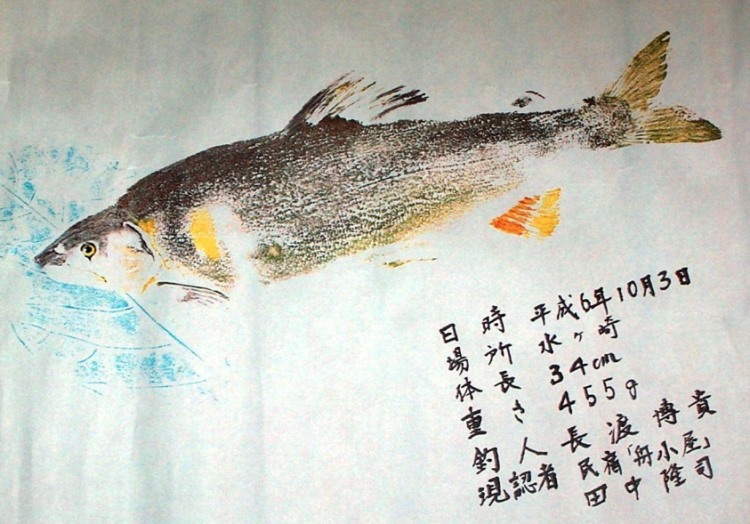 日時 平成6年10月3日
場所 水ヶ崎
体長 34cm
重さ 455g
釣人 長渡博貴
現認者 民宿「舟小屋」
田中隆司